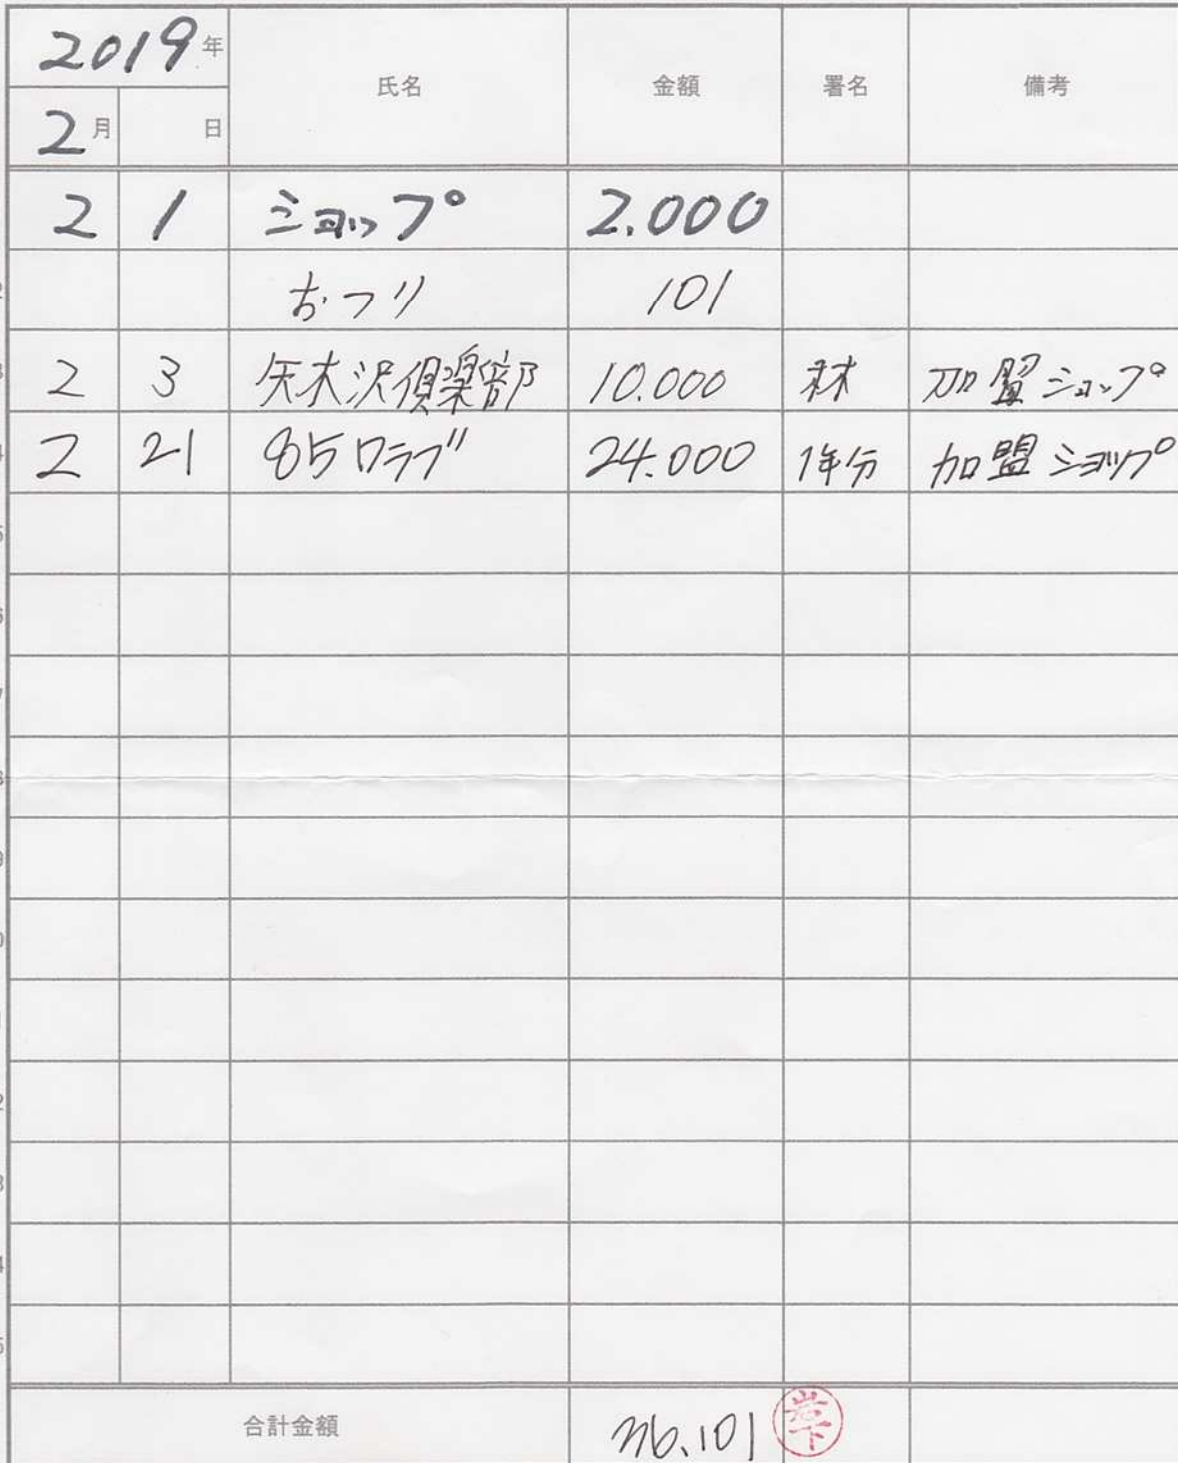 2019年 氏名 金額 署名 備考
2月 日
2 1 ショップ 2.000
おつり 101
2 3 矢木沢倶楽部 10.000 林 加盟ショップ
2 21 85クラブ 24.000 1年分 加盟ショップ
合計金額 36.101 岩下